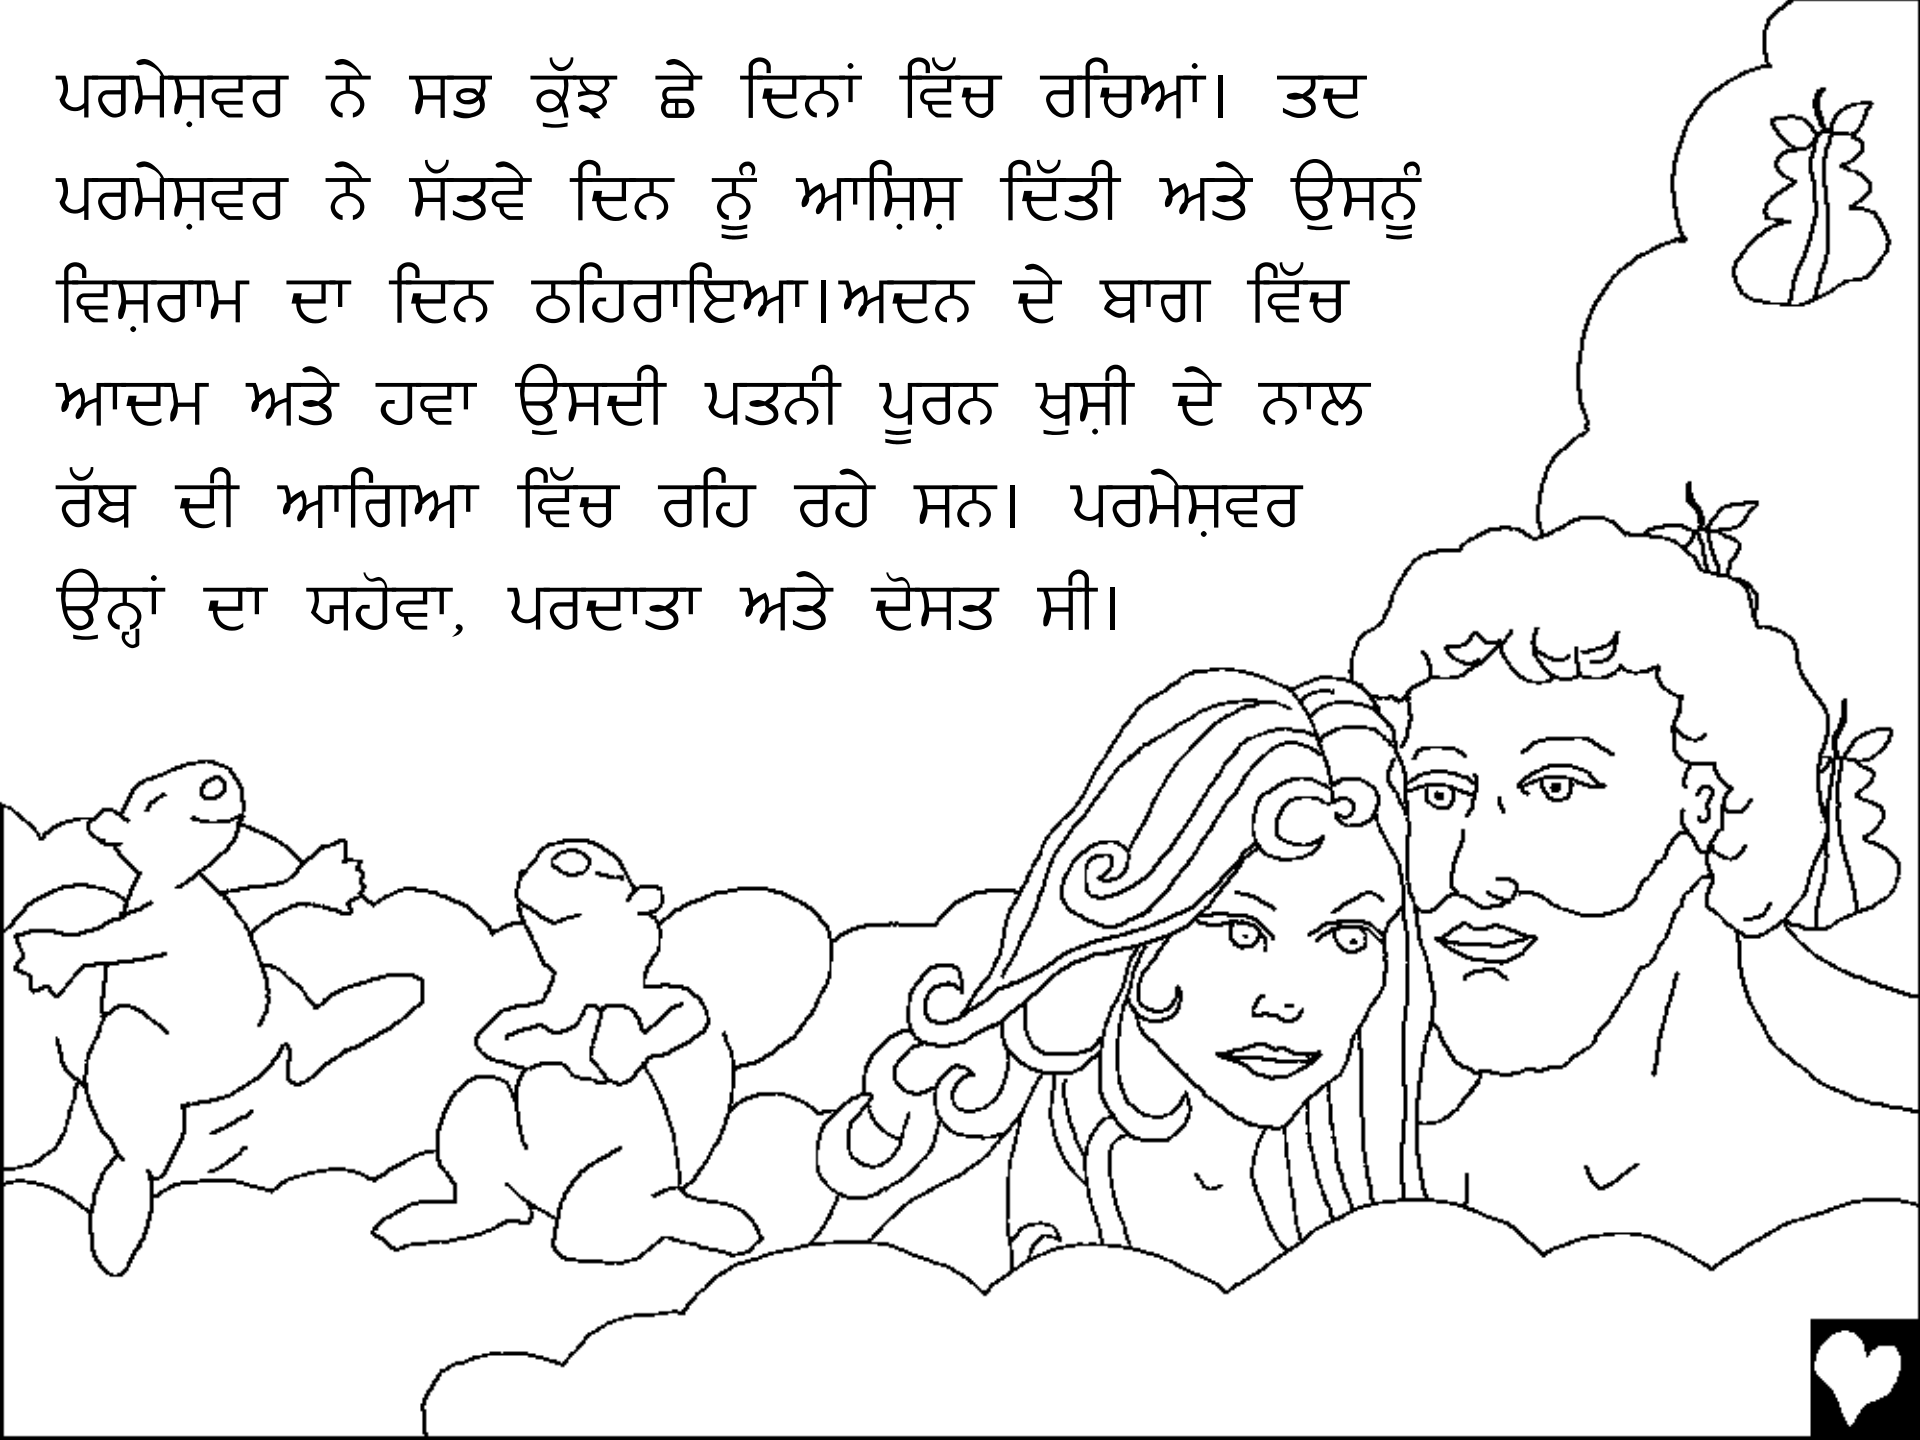 ਪਰਮੇਸ਼ਵਰ ਨੇ ਸਭ ਕੁੱਝ ਛੇ ਦਿਨਾਂ ਵਿੱਚ ਰਚਿਆਂ। ਤਦ
ਪਰਮੇਸ਼ਵਰ ਨੇ ਸੱਤਵੇ ਦਿਨ ਨੂੰ ਆਸ਼ਿਸ਼ ਦਿੱਤੀ ਅਤੇ ਉਸਨੂੰ
ਵਿਸ਼ਰਾਮ ਦਾ ਦਿਨ ਠਹਿਰਾਇਆ।ਅਦਨ ਦੇ ਬਾਗ ਵਿੱਚ
ਆਦਮ ਅਤੇ ਹਵਾ ਉਸਦੀ ਪਤਨੀ ਪੂਰਨ ਖੁਸ਼ੀ ਦੇ ਨਾਲ
ਰੱਬ ਦੀ ਆਗਿਆ ਵਿੱਚ ਰਹਿ ਰਹੇ ਸਨ। ਪਰਮੇਸ਼ਵਰ
ਉਨ੍ਹਾਂ ਦਾ ਯਹੋਵਾ, ਪਰਦਾਤਾ ਅਤੇ ਦੋਸਤ ਸੀ।